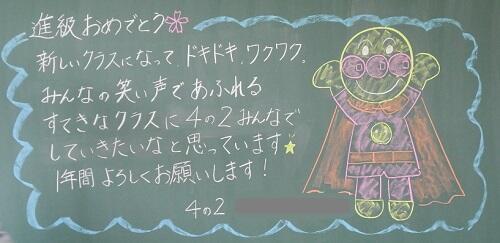 進級おめでとう
新しいクラスになって、ドキドキ、ワクワク。
みんなの笑い声であふれる
すてきなクラスに4の2みんなで
していきたいなと思っています
1年間よろしくお願いします!
4の2